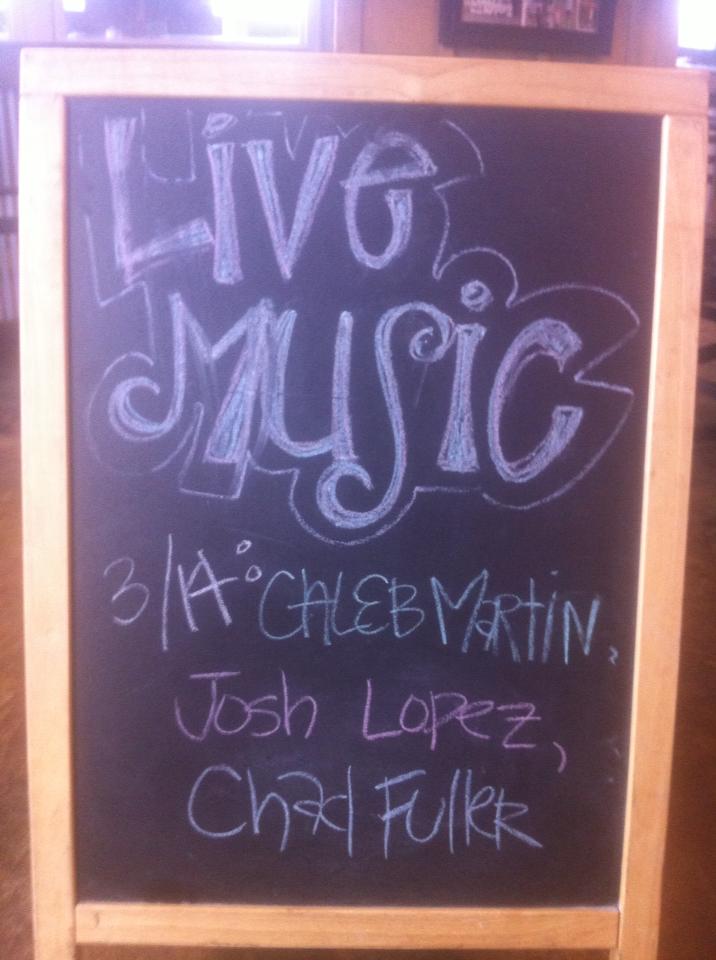 Live
Music
3/14: CALEB MARTIN,
Josh Lopez,
Chad Fuller